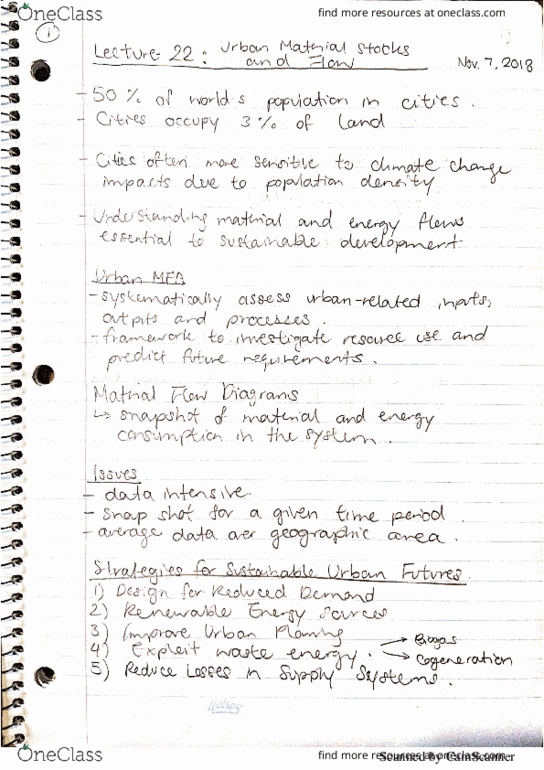 OneClass
find more resources at oneclass.com
1
Lecture 22: Urban Material Stocks
and Flow
Nov. 7, 2018
- 50% of world's population in cities.
- Cities occupy 3% of land
- Cities often more sensible to climate change
impacts due to population density
- Understanding material and energy flows
essential to sustainable development
Urban MFA
- systematically assess urban-related inputs,
outputs and processes.
- framework to investigate resource use and
predict future requirements.
Material Flow Diagrams
↳ snapshot of material and energy
consumption in the system.
Issues
- data intensive.
- snap shot for a given time period.
- average data over geographic area.
Strategies for Sustainable Urban Futures
1) Design for Reduced Demand
2) Renewable Energy Sources
3) Improve Urban Planning
4) Exploit waste energy. → Biogas
→ cogeneration
5) Reduce Losses in Supply Systems.
OneClass
find more resources at oneclass.com
Scanned by CamScanner